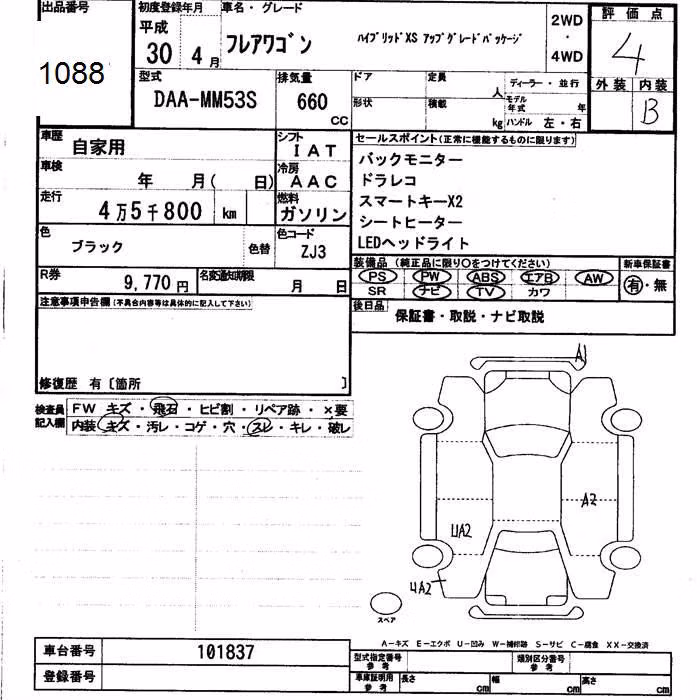 出品番号
1088
初度登録年月
平成
30 4 月
車名・グレード
フレアワゴン ハイブリッドXS アップグレードパッケージ
2WD
・
4WD
評価点
4
外装 内装
B
型式
DAA-MM53S
排気量
660
CC
ドア 定員 人
形状 積載 kg
ディーラー・並行
モデル年式 年
ハンドル 左・右
車歴
自家用
シフト
IAT
車検
年 月( 日)
冷房
AAC
走行
4万5千800 km
燃料
ガソリン
色
ブラック
色替
色コード
ZJ3
R券
9,770円
名変通知期限
月 日
セールスポイント(正常に機能するものに限ります)
バックモニター
ドラレコ
スマートキーX2
シートヒーター
LEDヘッドライト
装備品(純正品に限り○をつけてください)
PS PW ABS エアB AW
SR ナビ TV カワ
新車保証書
有・無
後日品
保証書・取説・ナビ取説
注意事項申告欄(不具合内容等は具体的に記入して下さい)
修復歴 有〔箇所 〕
検査員
記入欄
FW キズ・飛石・ヒビ割・リペア跡・×要
内装・キズ・汚レ・コゲ・穴・スレ・キレ・破レ
A1
A2
UA2
UA2
スペア
A−キズ E−エクボ U−凹み W−補修跡 S−サビ C−腐食 XX−交換済
車台番号
101837
登録番号
型式指定番号
参考
類別区分番号
参考
車庫証明用
参考
長さ cm 幅 cm 高さ cm